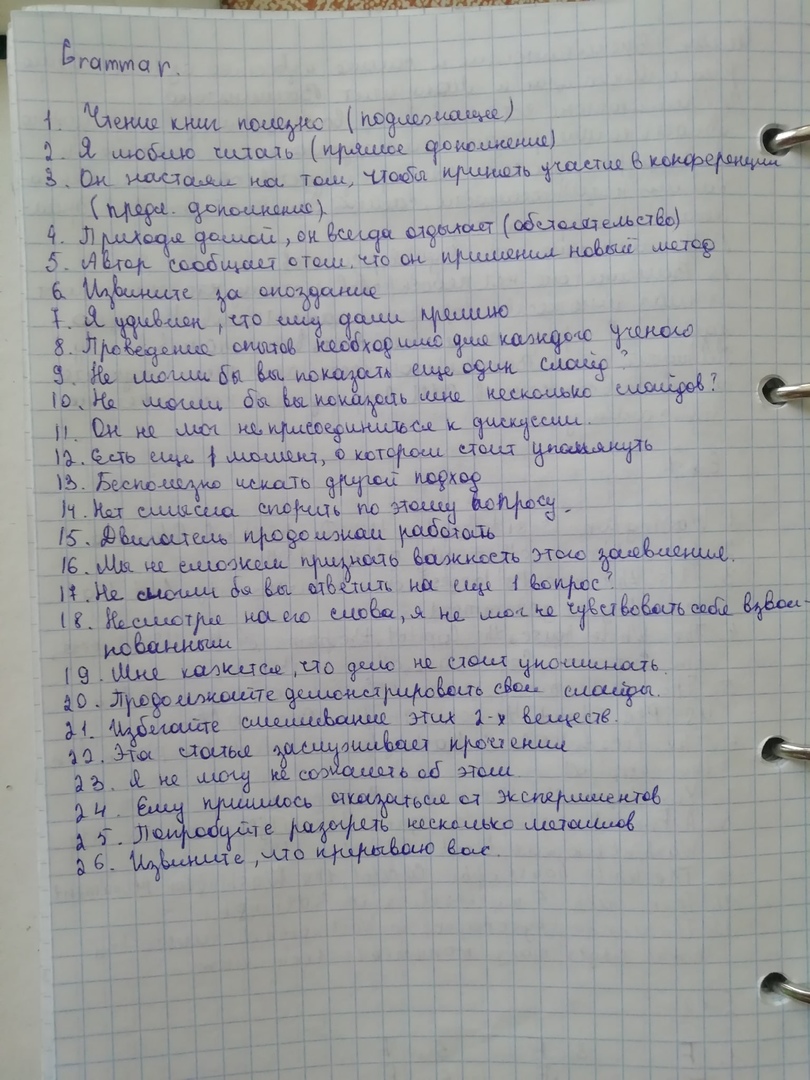 Grammar.
1. Чтение книг полезно (подлежащее)
2. Я люблю читать (прямое дополнение)
3. Он настаял на том, чтобы принять участие в конференции
(предл. дополнение)
4. Приходя домой, он всегда отдыхает (обстоятельство)
5. Автор сообщает о том, что он применил новый метод
6. Извините за опоздание
7. Я удивлен, что ему дали премию
8. Проведение опытов необходимо для каждого ученого
9. Не могли бы вы показать еще один слайд?
10. Не могли бы вы показать мне несколько слайдов?
11. Он не мог не присоединиться к дискуссии.
12. Есть еще 1 момент, о котором стоит упомянуть
13. Бесполезно искать другой подход
14. Нет смысла спорить по этому вопросу.
15. Двигатель продолжал работать
16. Мы не сможем признать важность этого заявления.
17. Не могли бы вы ответить на еще 1 вопрос?
18. Несмотря на его слова, я не мог не чувствовать себя взвол-
нованным
19. Мне кажется, что дело не стоит упоминать.
20. Продолжайте демонстрировать свои слайды.
21. Избегайте смешивание этих 2-х веществ.
22. Эта статья заслуживает прочтения
23. Я не могу не сожалеть об этом
24. Ему пришлось отказаться от экспериментов
25. Попробуйте разогреть несколько металлов
26. Извините, что прерываю вас.